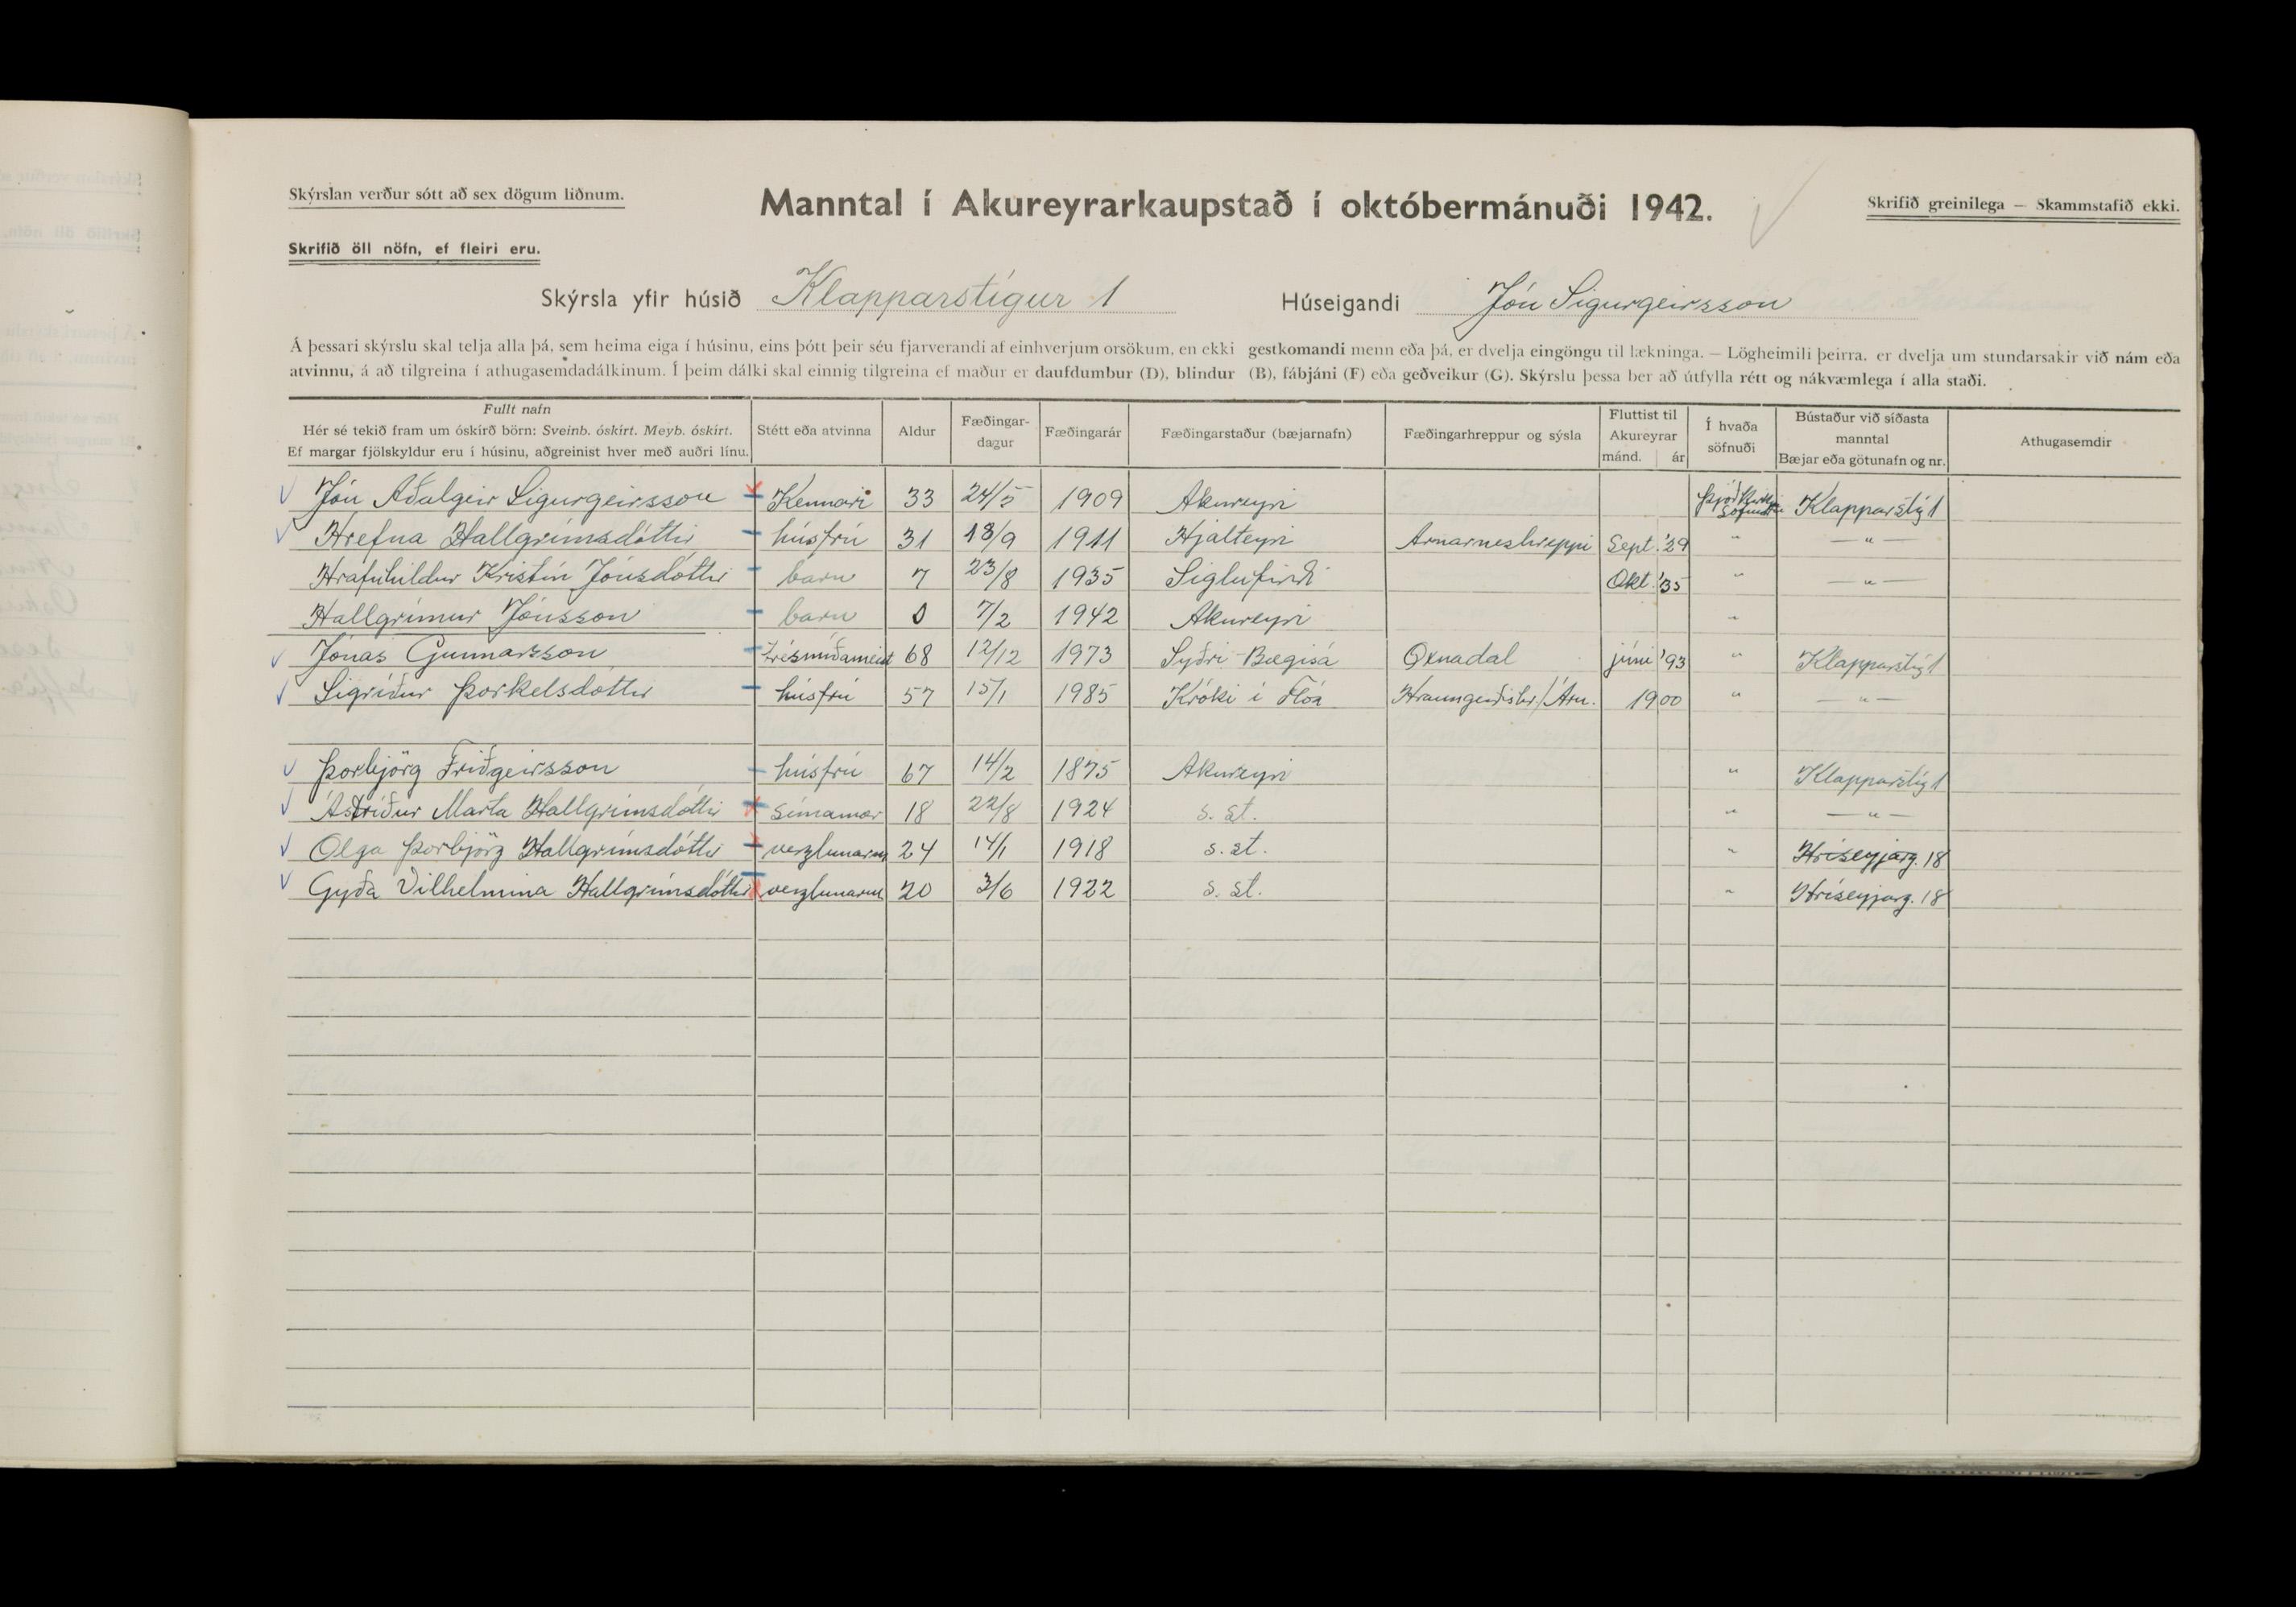 Skýrslan verður sótt að sex dögum liðnum.
Manntal í Akureyrarkaupstað í októbermánuði 1942.
Skrifið greinilega — Skammstafið ekki.
Skrifið öll nöfn, ef fleiri eru.
Skýrsla yfir húsið Klapparstígur 1 Húseigandi Jón Sigurgeirsson
Á þessari skýrslu skal telja alla þá, sem heima eiga í húsinu, eins þótt þeir séu fjarverandi af einhverjum orsökum, en ekki gestkomandi menn eða þá, er dvelja eingöngu til lækninga. — Lögheimili þeirra, er dvelja um stundarsakir við nám eða
atvinnu, á að tilgreina í athugasemdadálkinum. Í þeim dálki skal einnig tilgreina ef maður er daufdumbur (D), blindur (B), fábjáni (F) eða geðveikur (G). Skýrslu þessa ber að útfylla rétt og nákvæmlega í alla staði.
Fullt nafn
Hér sé tekið fram um óskírð börn: Sveinb. óskírt. Meyb. óskírt.
Ef margar fjölskyldur eru í húsinu, aðgreinist hver með auðri línu.
Stétt eða atvinna
Aldur
Fæðingar-
dagur
Fæðingarár
Fæðingarstaður (bæjarnafn)
Fæðingarhreppur og sýsla
Fluttist til
Akureyrar
mánd. ár
Í hvaða
söfnuði
Bústaður við síðasta
manntal
Bæjar eða götunafn og nr.
Athugasemdir
Jón Aðalgeir Sigurgeirsson Kennari 33 24/5 1909 Akureyri Klapparstíg 1
Hrefna Hallgrímsdóttir húsfrú 31 13/9 1911 Hjalteyri Arnarneshreppi Sept. '29 " — " —
Hrafnhildur Kristín Jónsdóttir barn 7 23/8 1935 Siglufirði Okt. '35 " — " —
Hallgrímur Jónsson barn 0 7/2 1942 Akureyri "
Jónas Gunnarsson trésmíðameist 68 12/12 1973 Syðri-Bægisá Öxnadal júni '93 " Klapparstíg 1
Sigríður Þorkelsdóttir húsfrú 57 15/1 1985 Króki í Flóa Hraungerðishr./Árn. 1900 " — " —
Þorbjörg Friðgeirsson húsfrú 67 14/2 1875 Akureyri " Klapparstíg 1
Ástríður Marta Hallgrímsdóttir símamær 18 22/8 1924 s. st. " — " —
Olga Þorbjörg Hallgrímsdóttir verzlunarm 24 14/1 1918 s. st. " Hríseyjarg. 18
Gyða Vilhelmina Hallgrímsdóttir verzlunarm 20 3/6 1922 s. st. " Hríseyjarg. 18